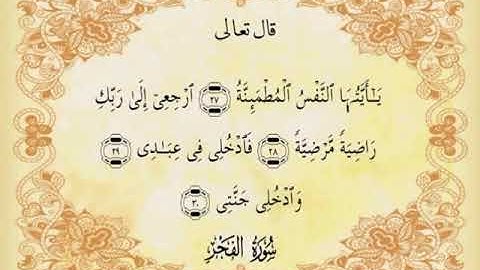 قال تعالى
يَـٰٓأَيَّتُهَا ٱلنَّفْسُ ٱلْمُطْمَئِنَّةُ ٢٧ ٱرْجِعِىٓ إِلَىٰ رَبِّكِ
رَاضِيَةً مَّرْضِيَّةً ٢٨ فَٱدْخُلِى فِى عِبَـٰدِى ٢٩
وَٱدْخُلِى جَنَّتِى ٣٠
سُورَةُ الفَجْرِ